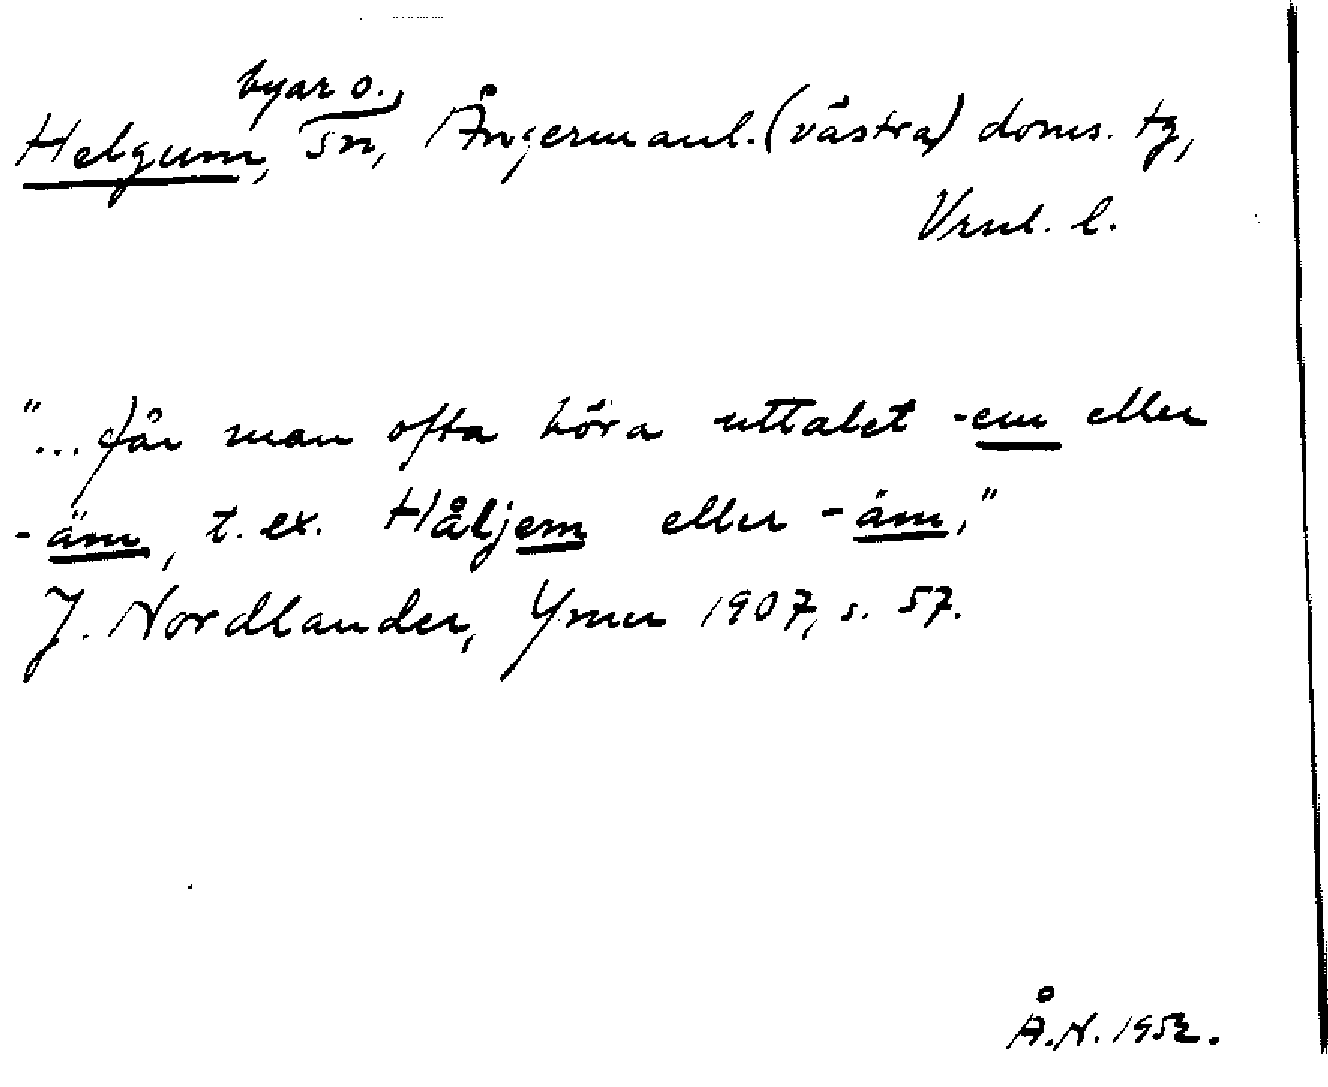 byar o.
Helgum, sn, Ångermanl. (västra) doms. tg,
Vrnl. l.
"... får man ofta höra uttalet -em eller
-äm, t. ex. Håljem eller -äm,"
J. Nordlander, Ymer 1907, s. 57.
Å.N. 1952.